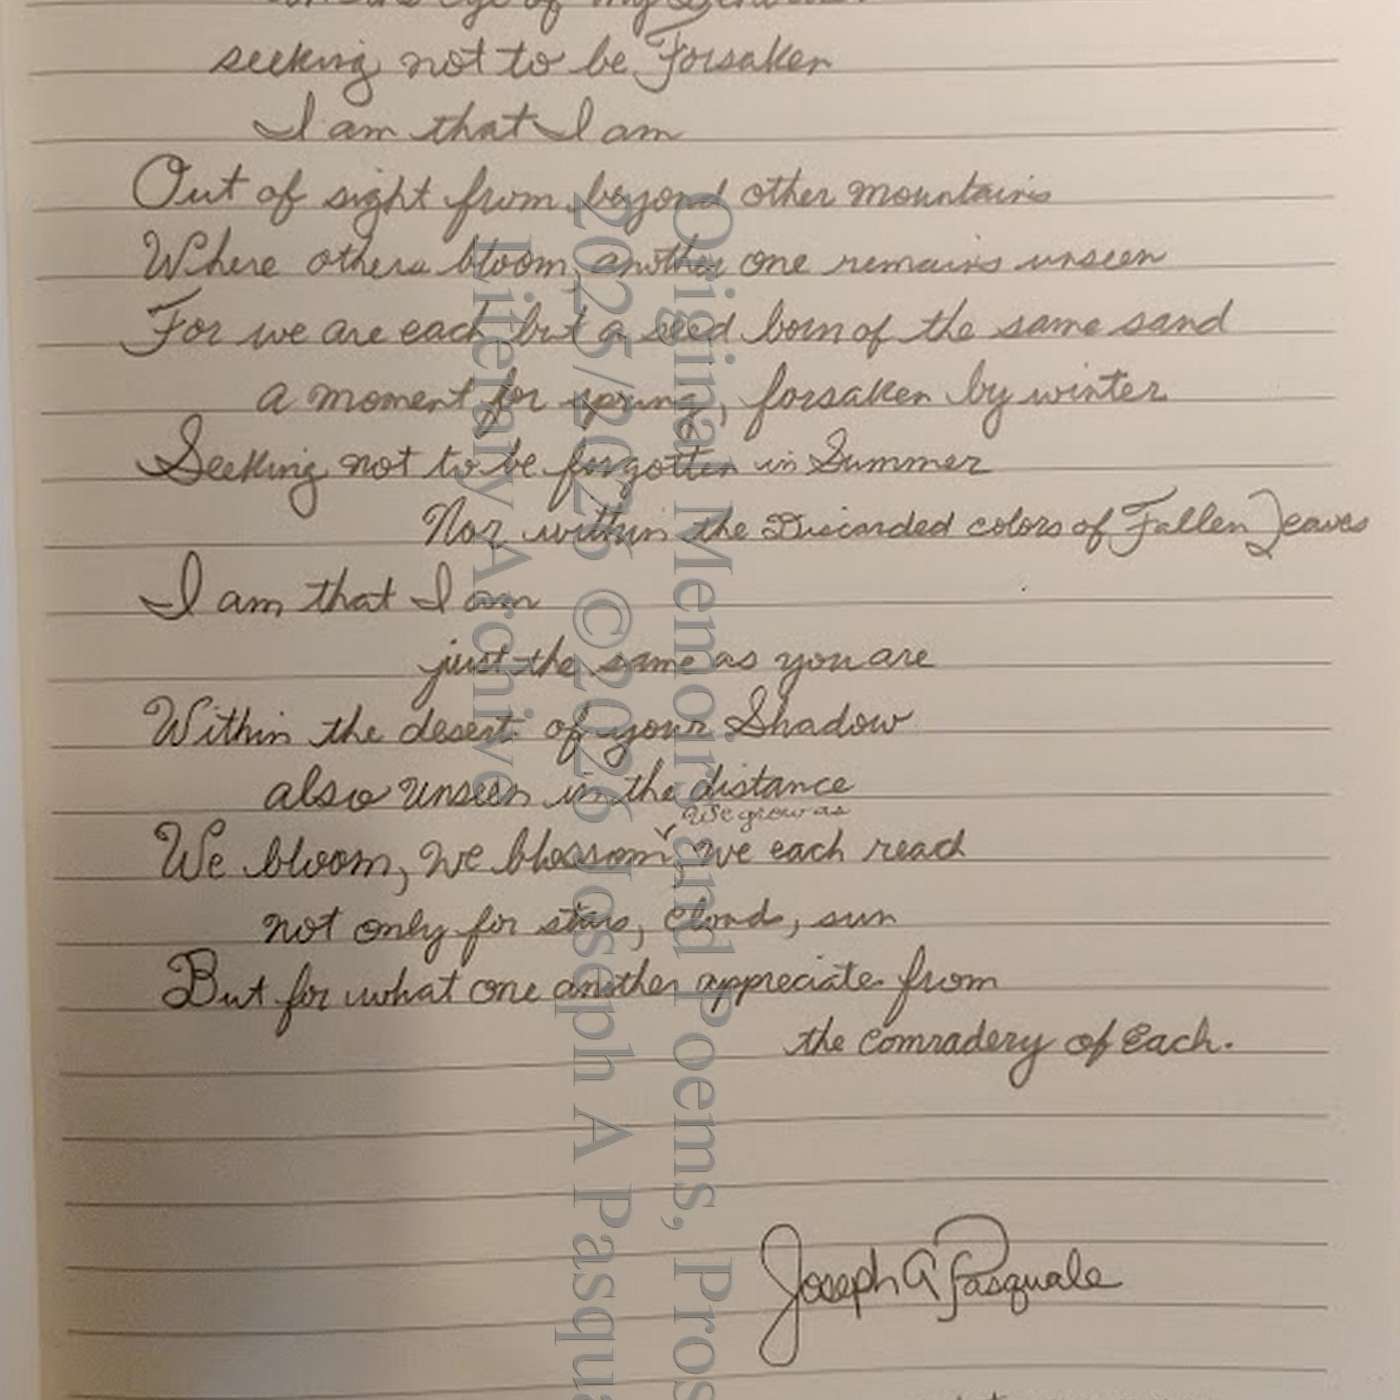 eye of my
seeking not to be Forsaken
I am that I am
Out of sight from beyond other mountains
Where others bloom, another one remains unseen
For we are each but a seed born of the same sand
a moment for spring, forsaken by winter
Seeking not to be forgotten in Summer
Nor within the Discarded colors of Fallen Leaves
I am that I am
just the same as you are
Within the desert of your Shadow
also unseen in the distance
We grow as
We bloom, we blossom, we each reach
not only for stars, cloud, sun
But for what one another appreciate from
the comradery of Each.
Joseph A Pasquale
Original Memoirs and Poems, Pros
2025/2026 © 2026 Joseph A Pasqua
Literary Archive